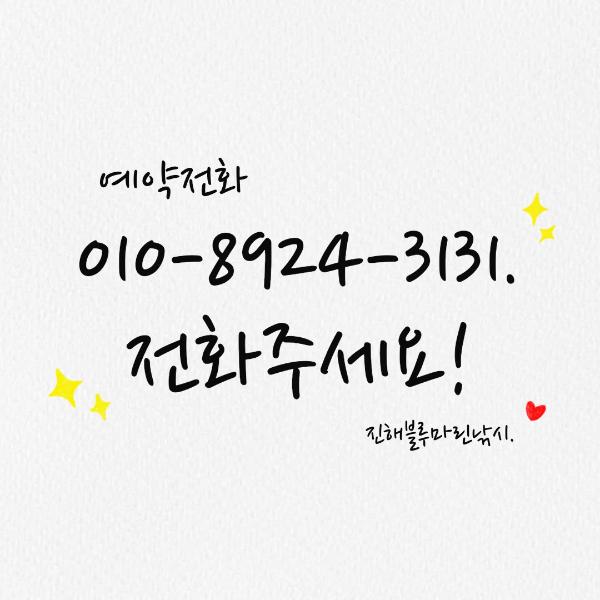 예약전화
010-8924-3131.
전화주세요!
진해블루마린낚시.